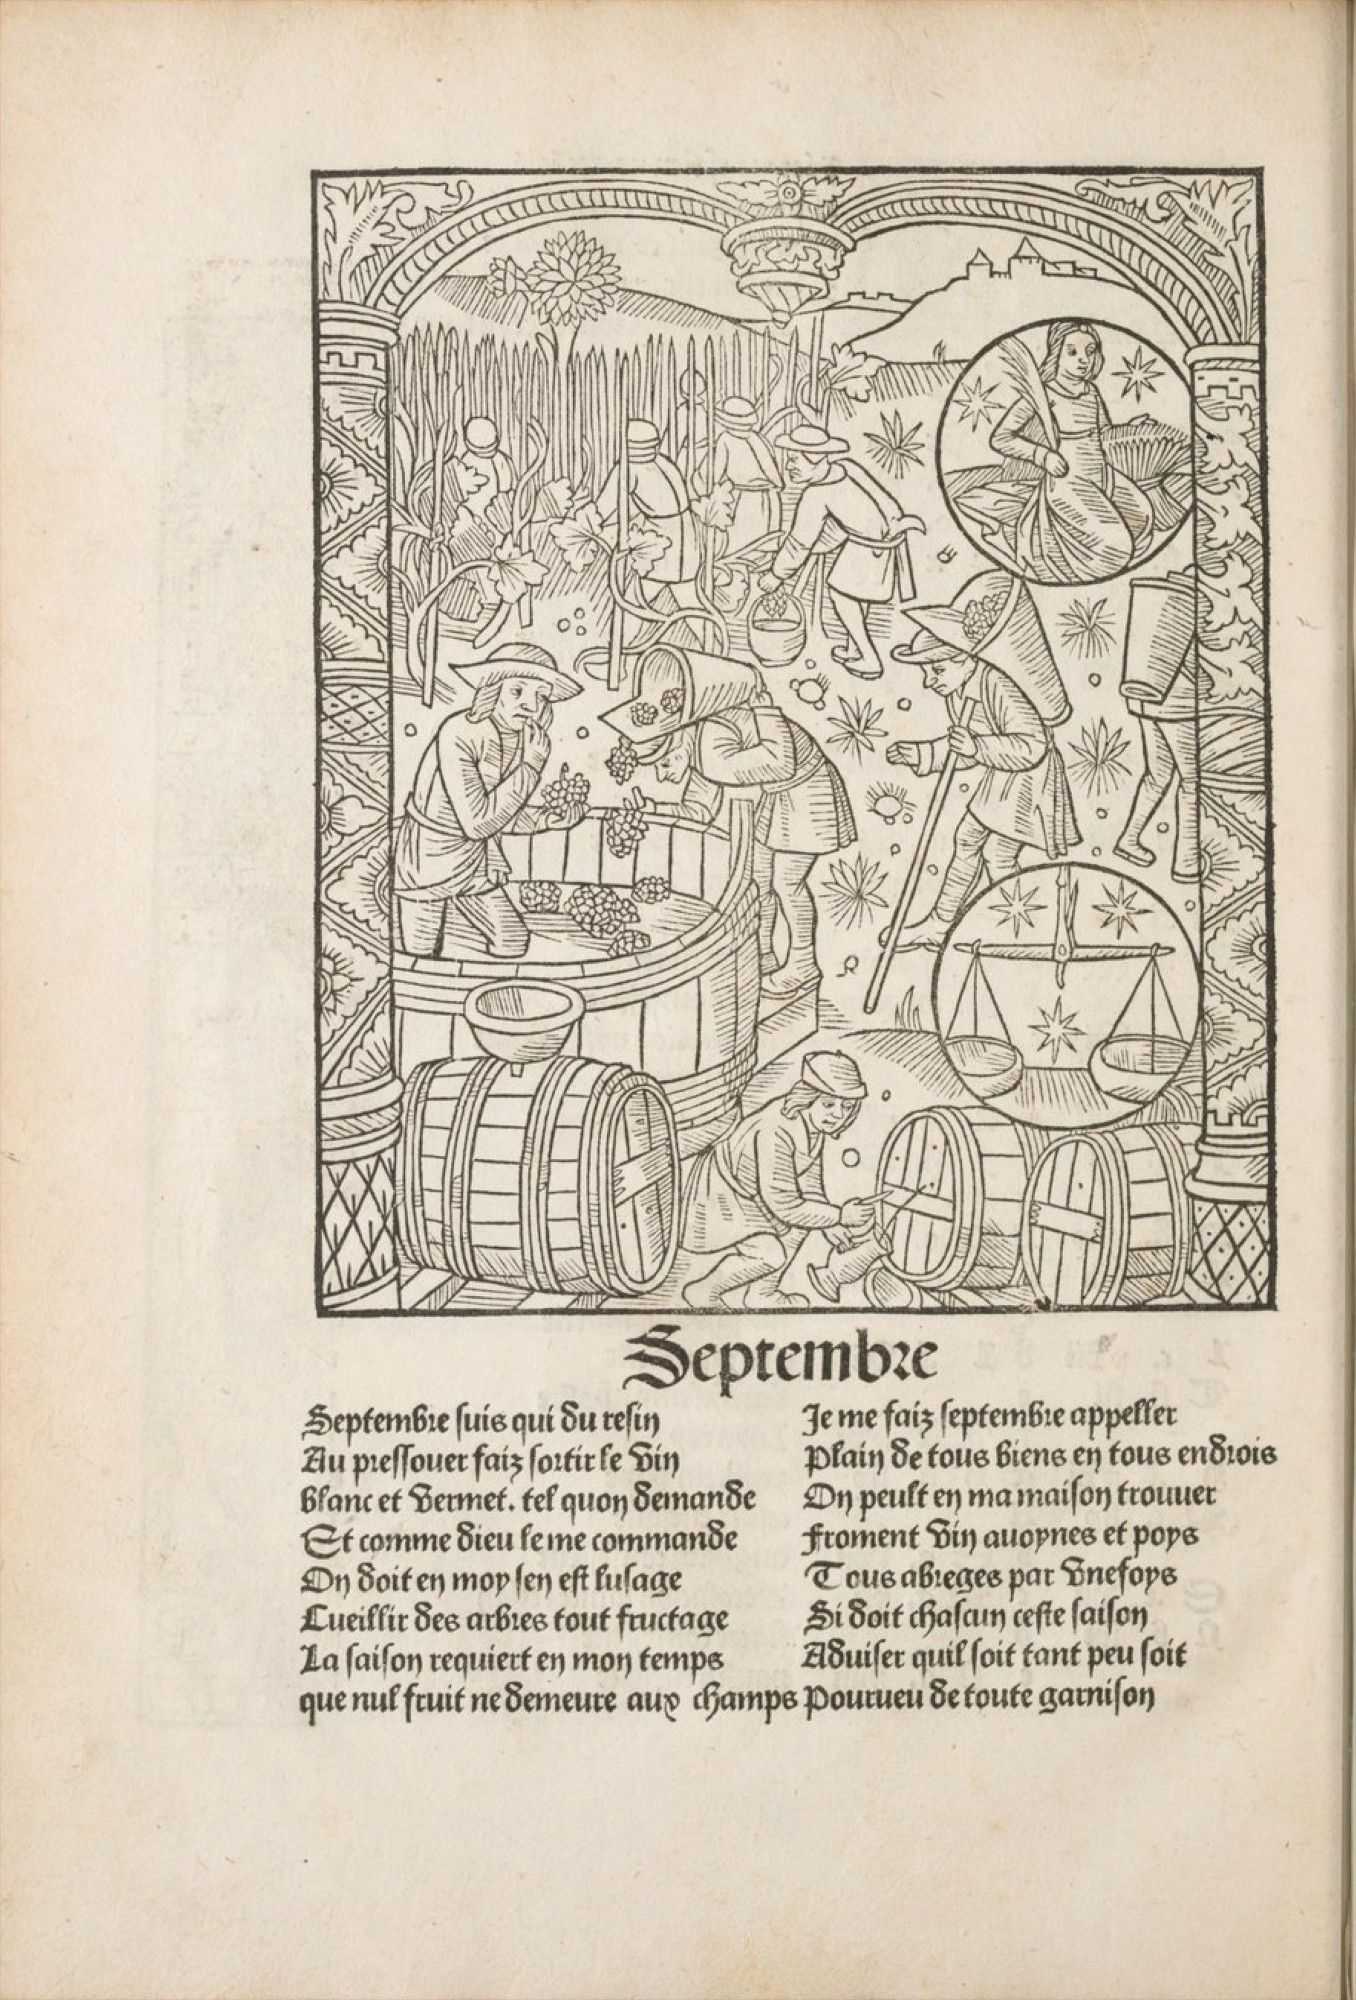 Septembre
Septembre suis qui du resin
Au pressouer faiz sortir le vin
blanc et vermet. tel quon demande
Et comme dieu le me commande
On doit en moy sen est lusage
Cueillir des arbres tout fructage
La saison requiert en mon temps
que nul fruit ne demeure aux champs
Je me faiz septembre appeller
Plain de tous biens en tous endrois
On peult en ma maison trouuer
Froment vin auoynes et poys
Tous abreges par vnefoys
Si doit chascun ceste saison
Aduiser quil soit tant peu soit
Pourueu de toute garnison